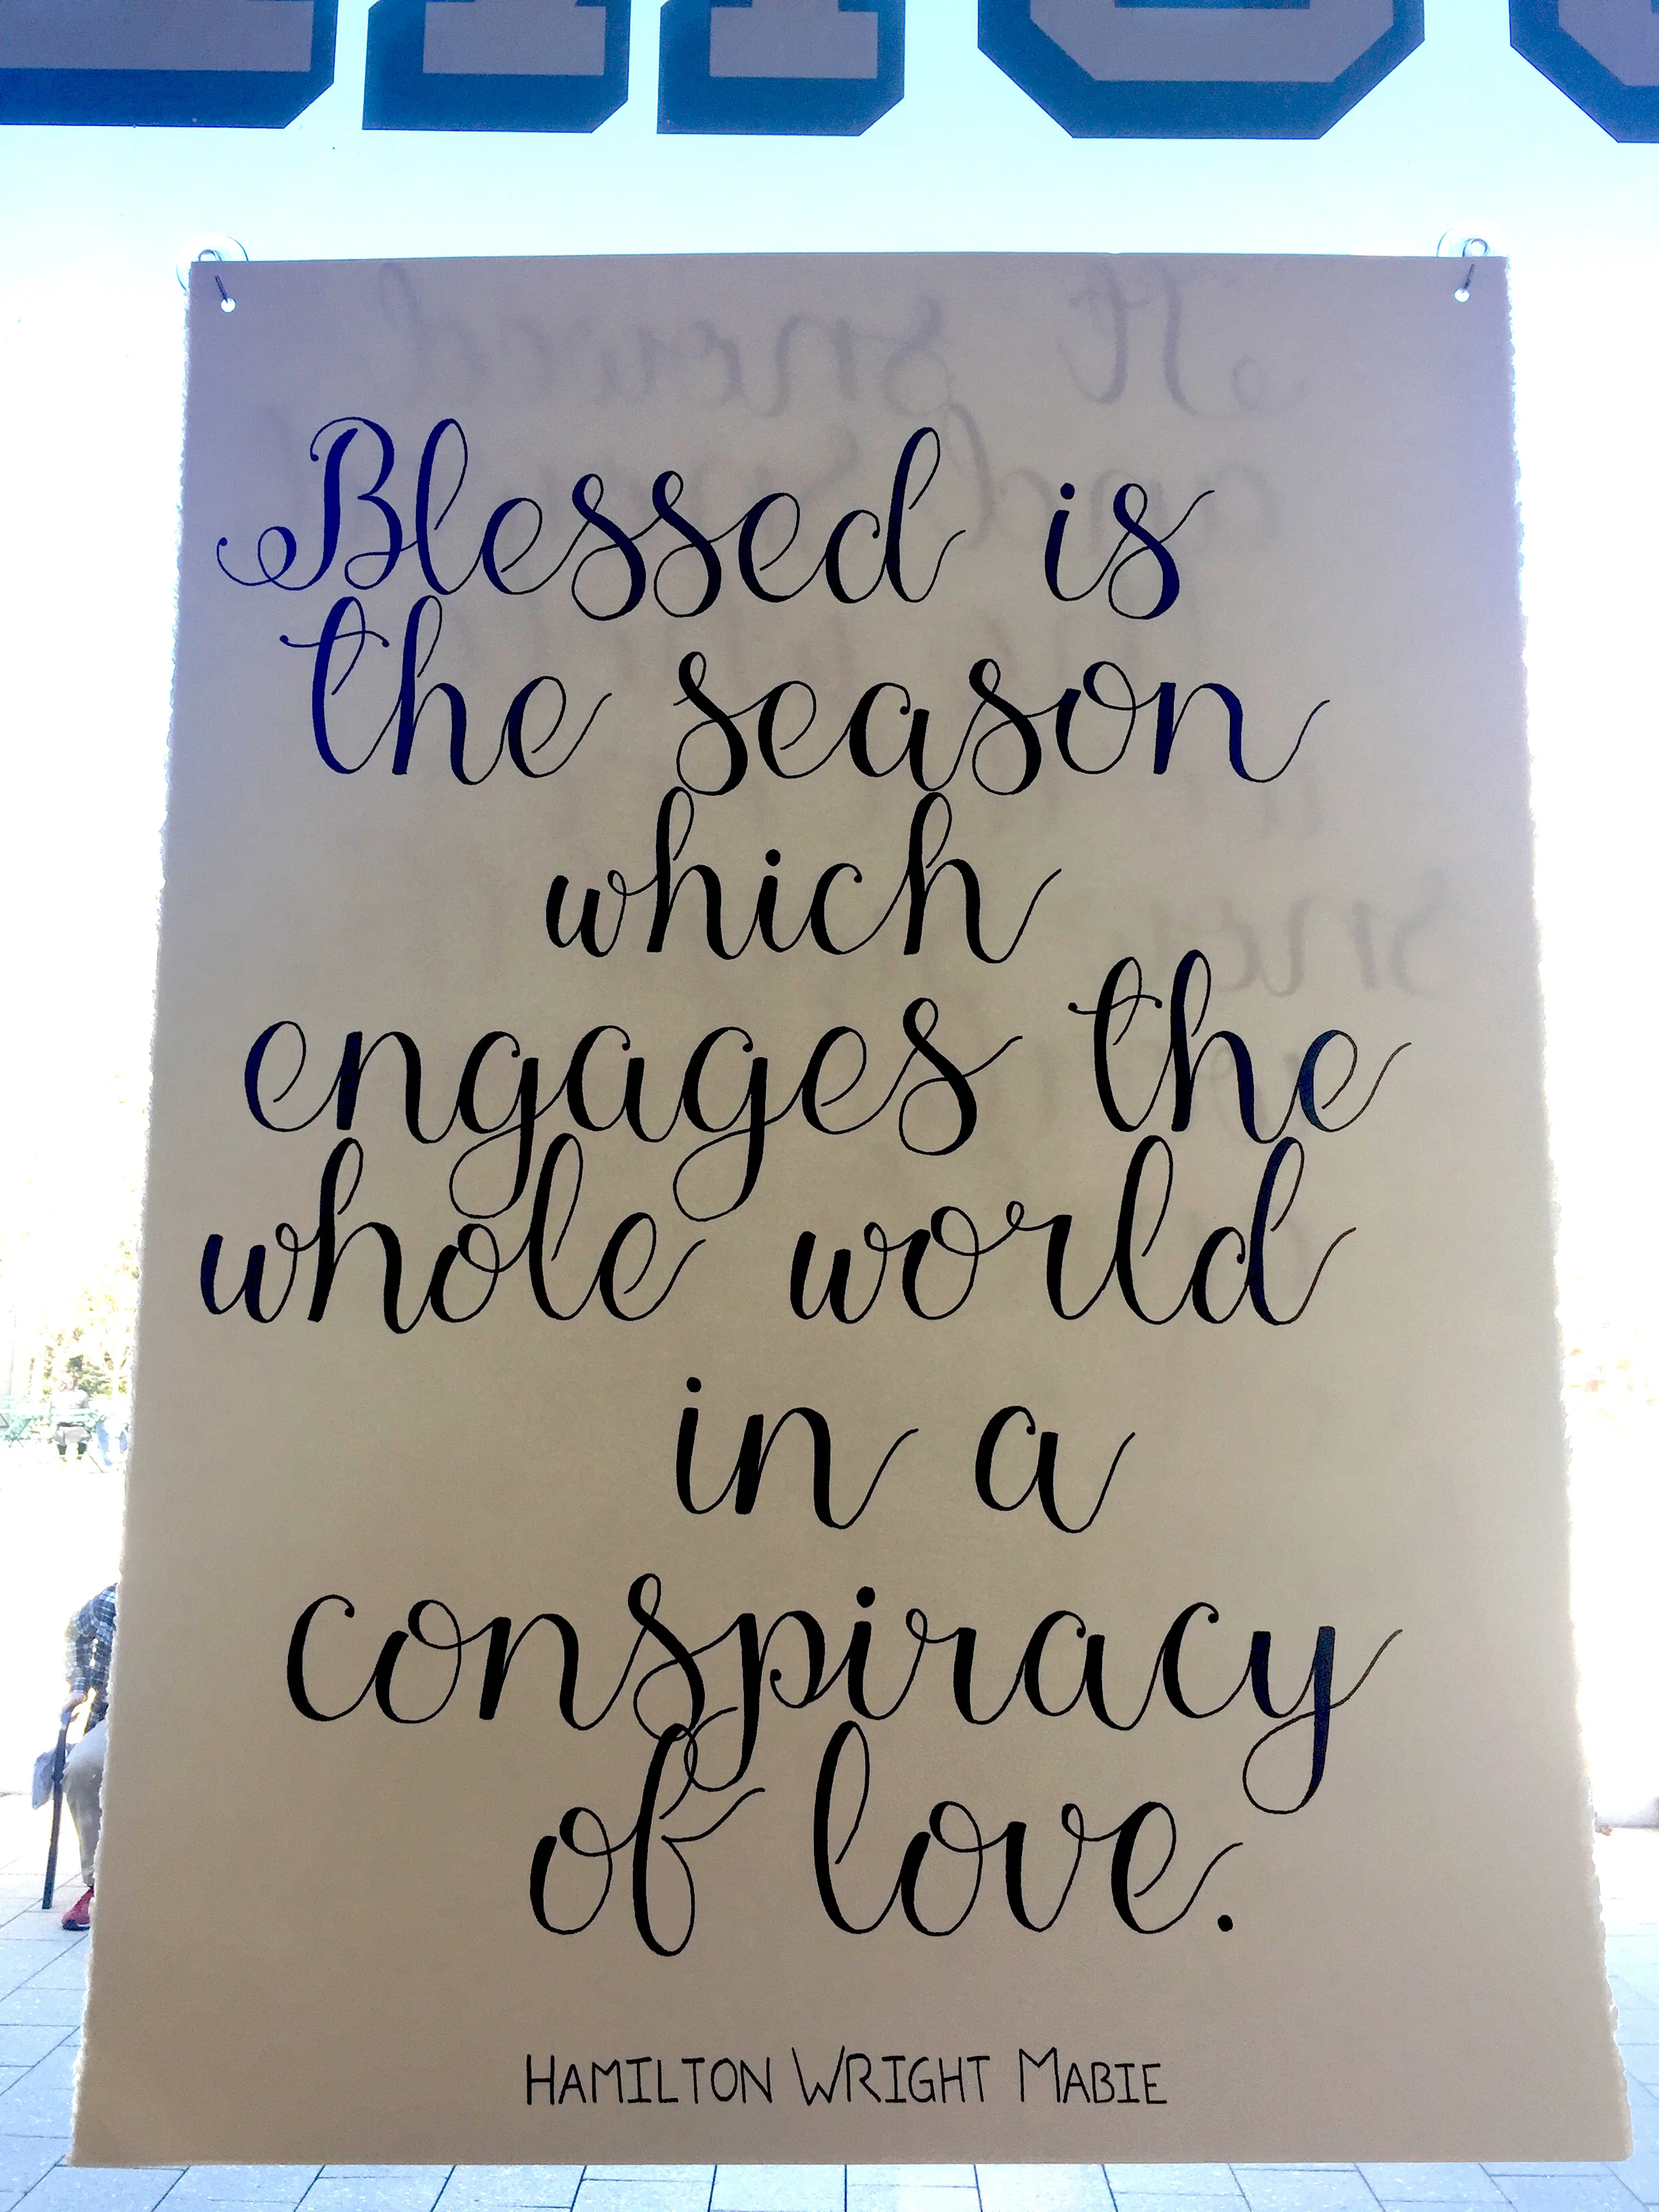 It snowed
Blessed is
the season
which
engages the
whole world
in a
conspiracy
of love.
HAMILTON WRIGHT MABIE